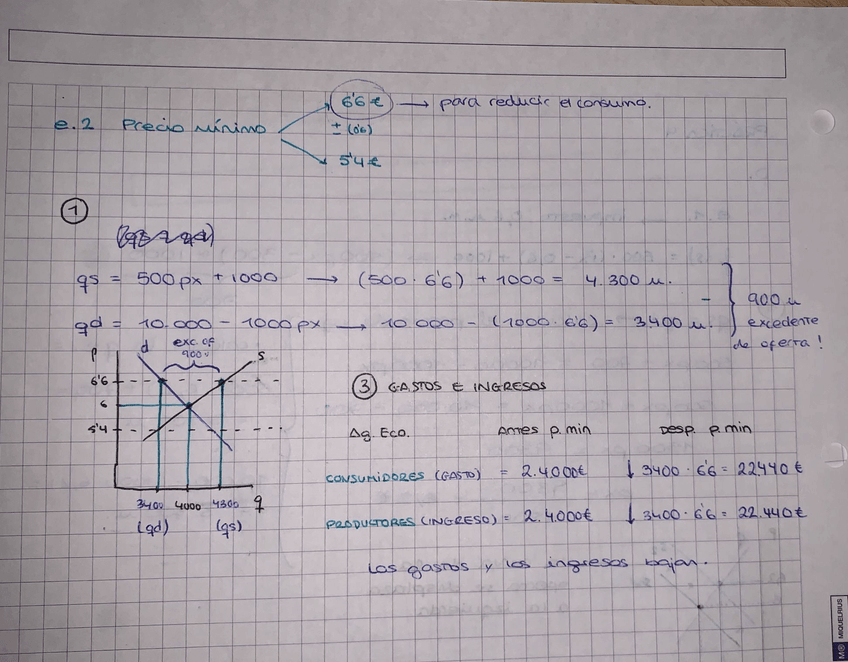 6'6 € → para reducir el consumo.
e.2 Precio mínimo
± (0'6)
5'4 €
1
qs = 500 px + 1000 → (500 · 6'6) + 1000 = 4.300 u.
-
900 u
excedente
de oferta !
qd = 10.000 - 1000 px → 10.000 - (1000 · 6'6) = 3400 u.
P
d
exc. of
900 u
s
6'6
6
5'4
3400 4000 4300 q
(qd) (qs)
3 GASTOS E INGRESOS
Ag. Eco. Antes p. min Desp. p. min
CONSUMIDORES (GASTO) = 2.4.000 € ↓ 3400 · 6'6 = 22440 €
PRODUCTORES (INGRESO) = 2.4.000 € ↓ 3400 · 6'6 = 22.440 €
Los gastos y los ingresos bajan.
MIQUELRIUS